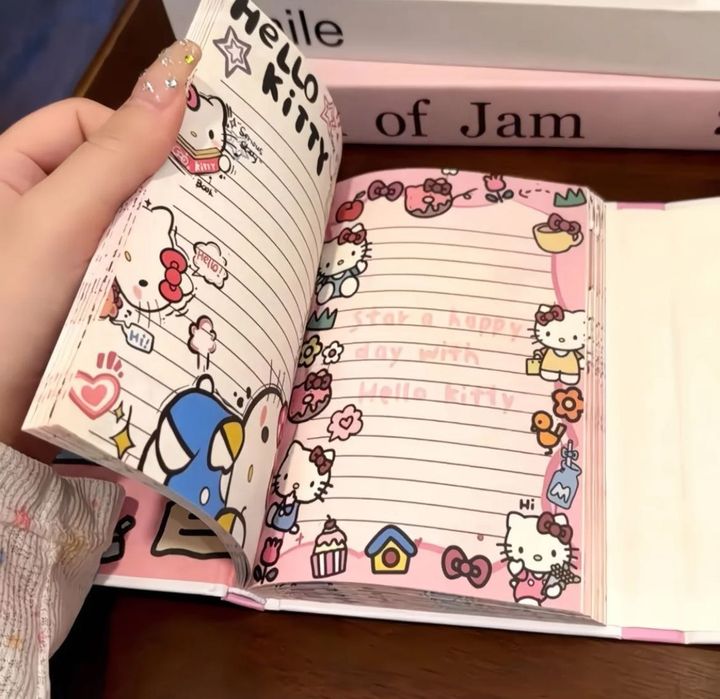 ile
of Jam
HELLO
KITTY
Serious
Kitty
Book
Hello!
Hi!
Star a happy
day with
Hello Kitty
M
Hi